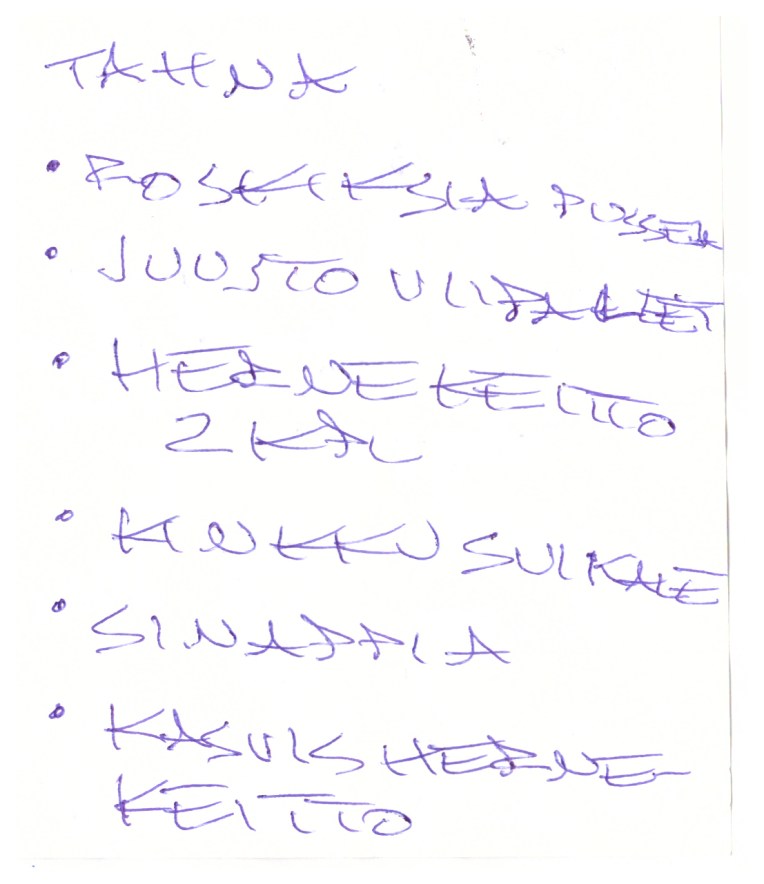 TAHNA
• ROSKIKSIA PUSSEJA
• JUUSTO VIIPALEET
• HERNEKEITTO
2 KPL
• KINKKU SUIKALE
• SINAPPIA
• KASVIS HERNE-
KEITTO